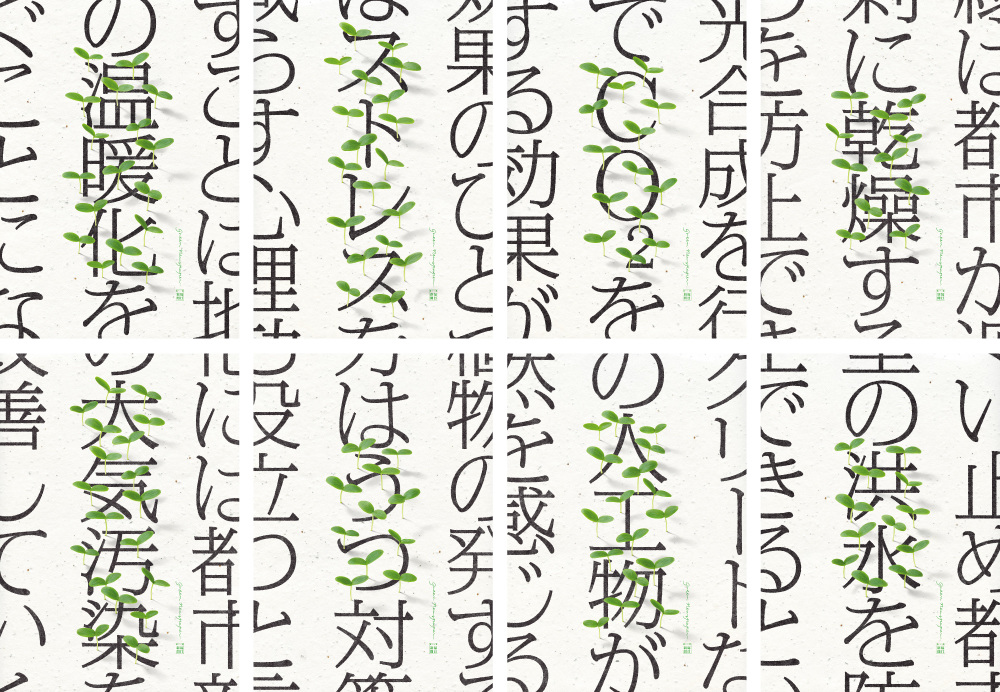 すことは地
の温暖化を
ぐことにな
効果のひとつ
はストレスを
減らす心理
光合成を行
でCO2を
する効果が
緑は都市が過
剰に乾燥する
を防止でき
化には都市部
の大気汚染を
改善してい
植物の発す
力はうつ対策
役立つと言
クリートな
の人工物が
を感じる
い止め都市
型の洪水を防
止できると